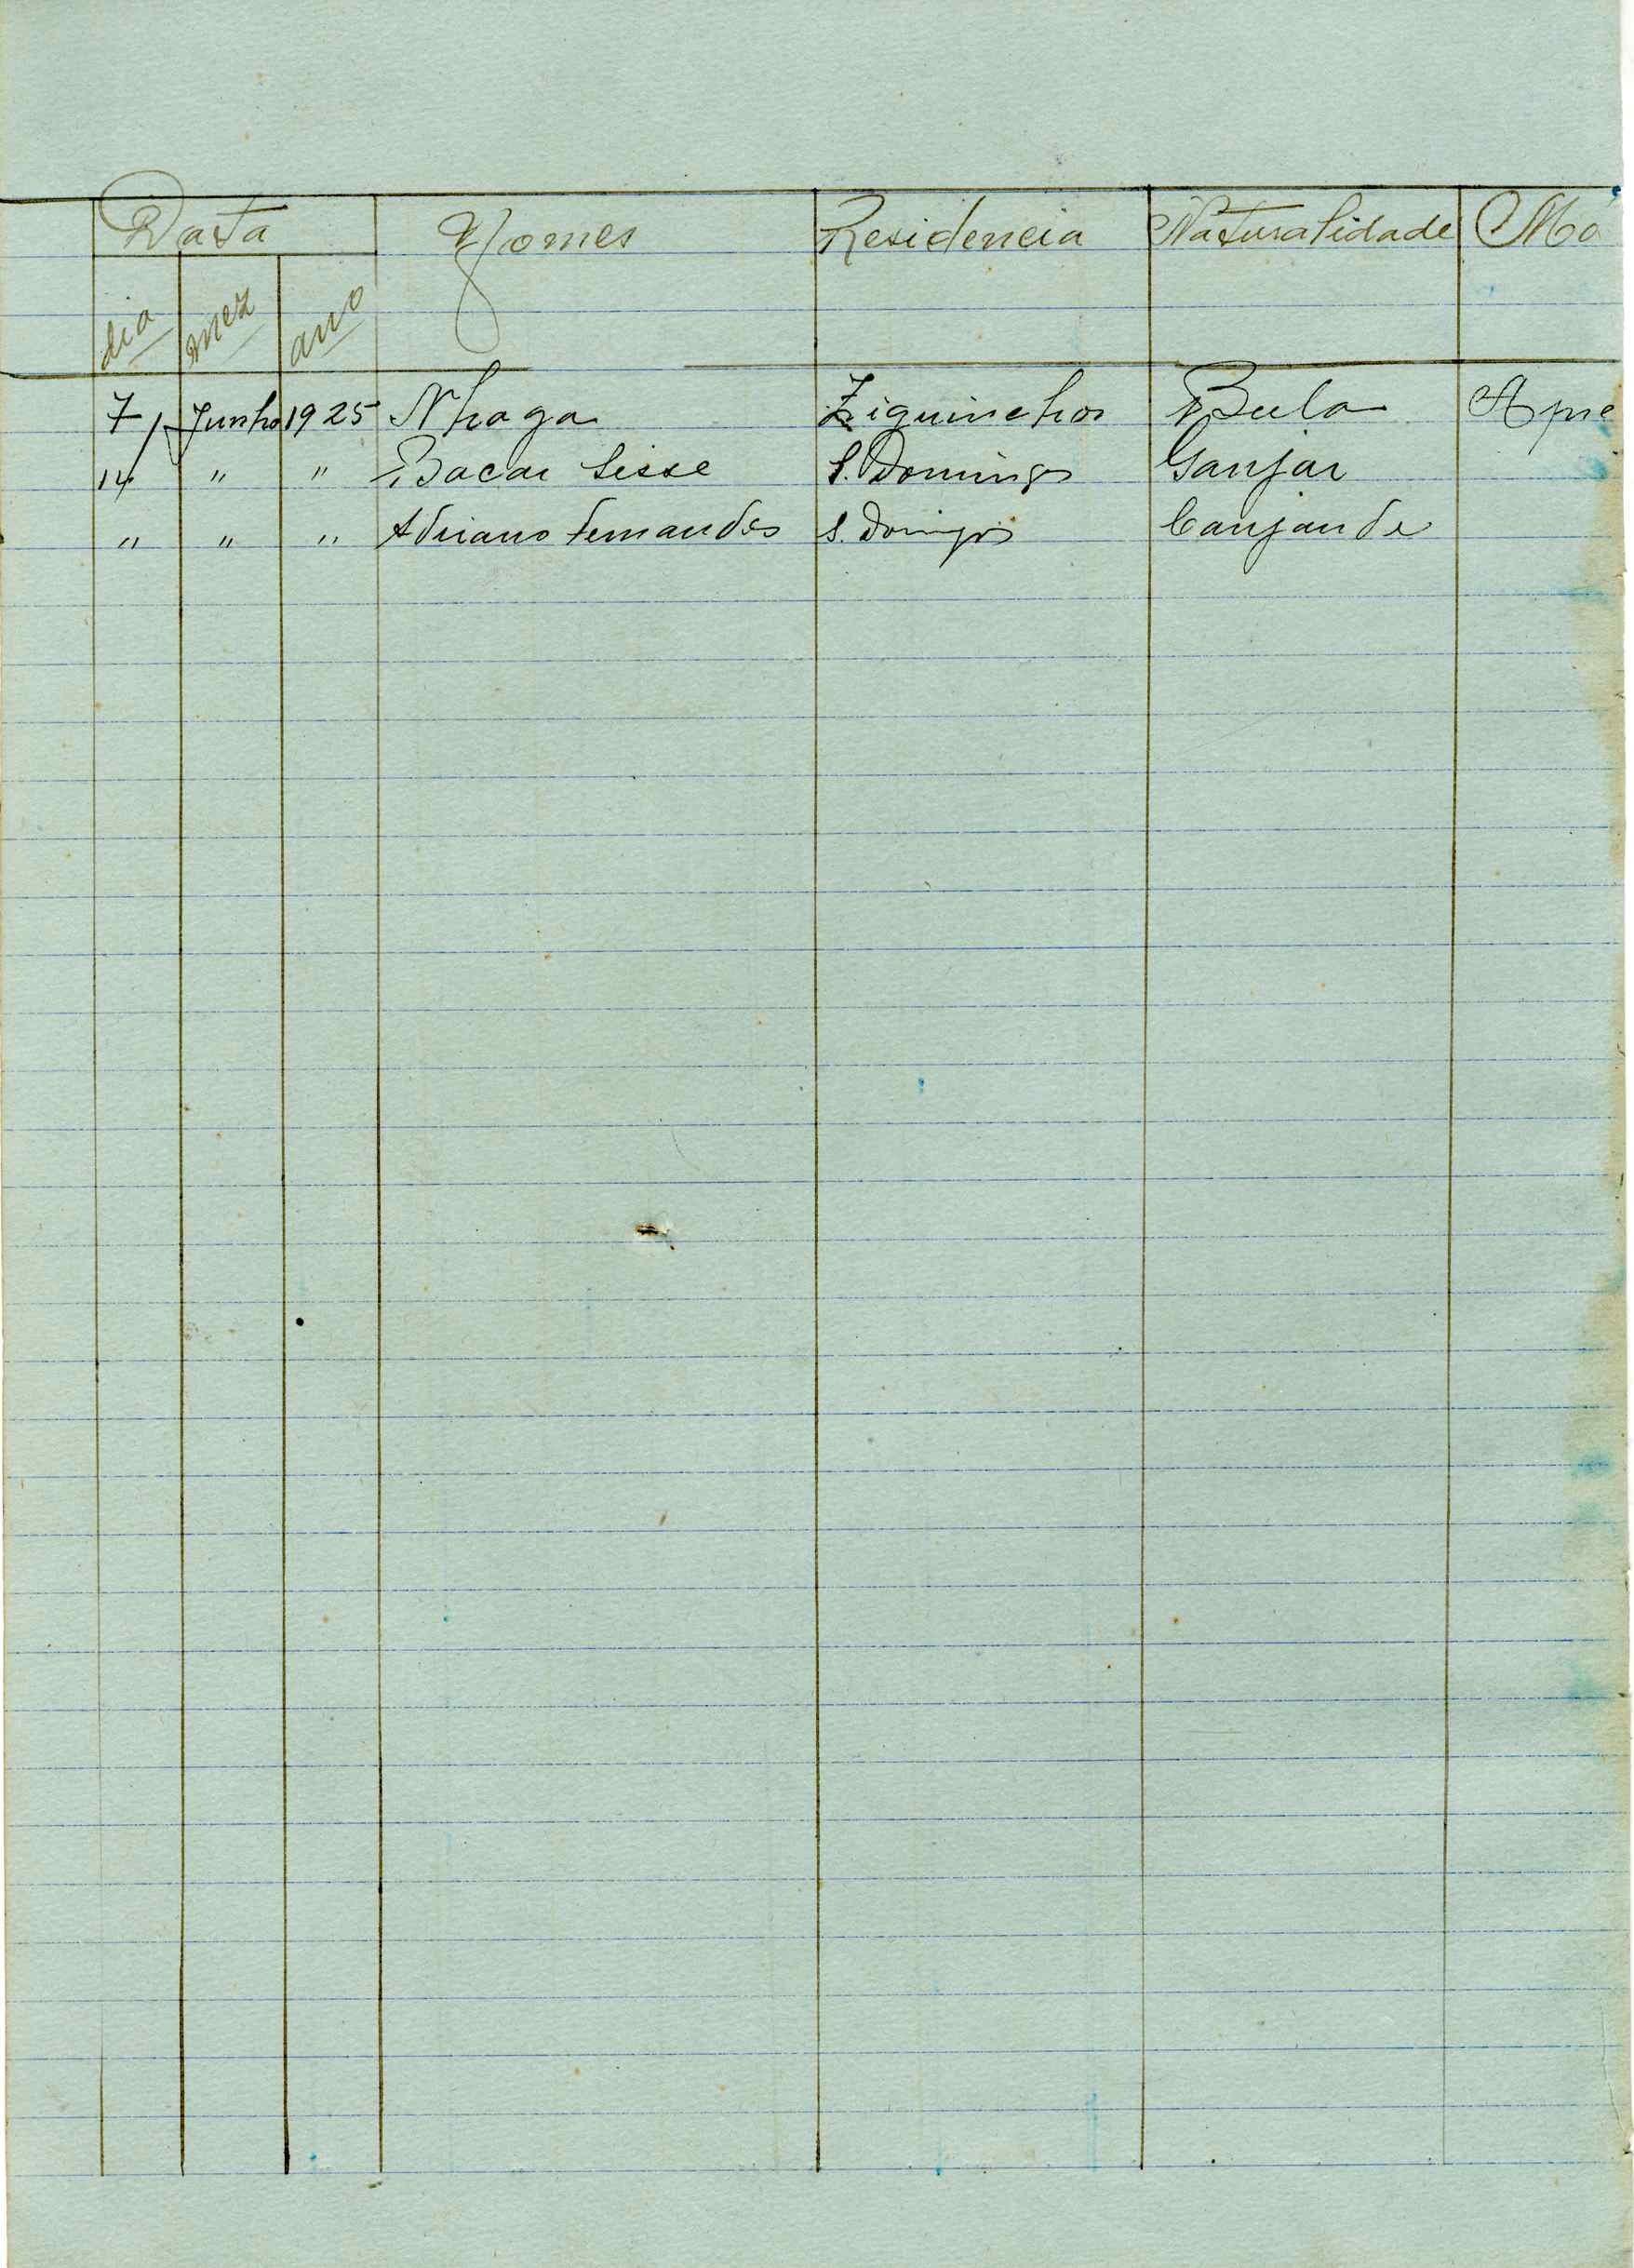 Data Nomes Residencia Naturalidade Mo
dia mez ano
7 Junho 1925 Nhaga Ziguinchor Bula Apre
14 " " Bacar Sisse S. Domingos Ganjar
" " " Adriano Fernandes S. Domingos Canjande